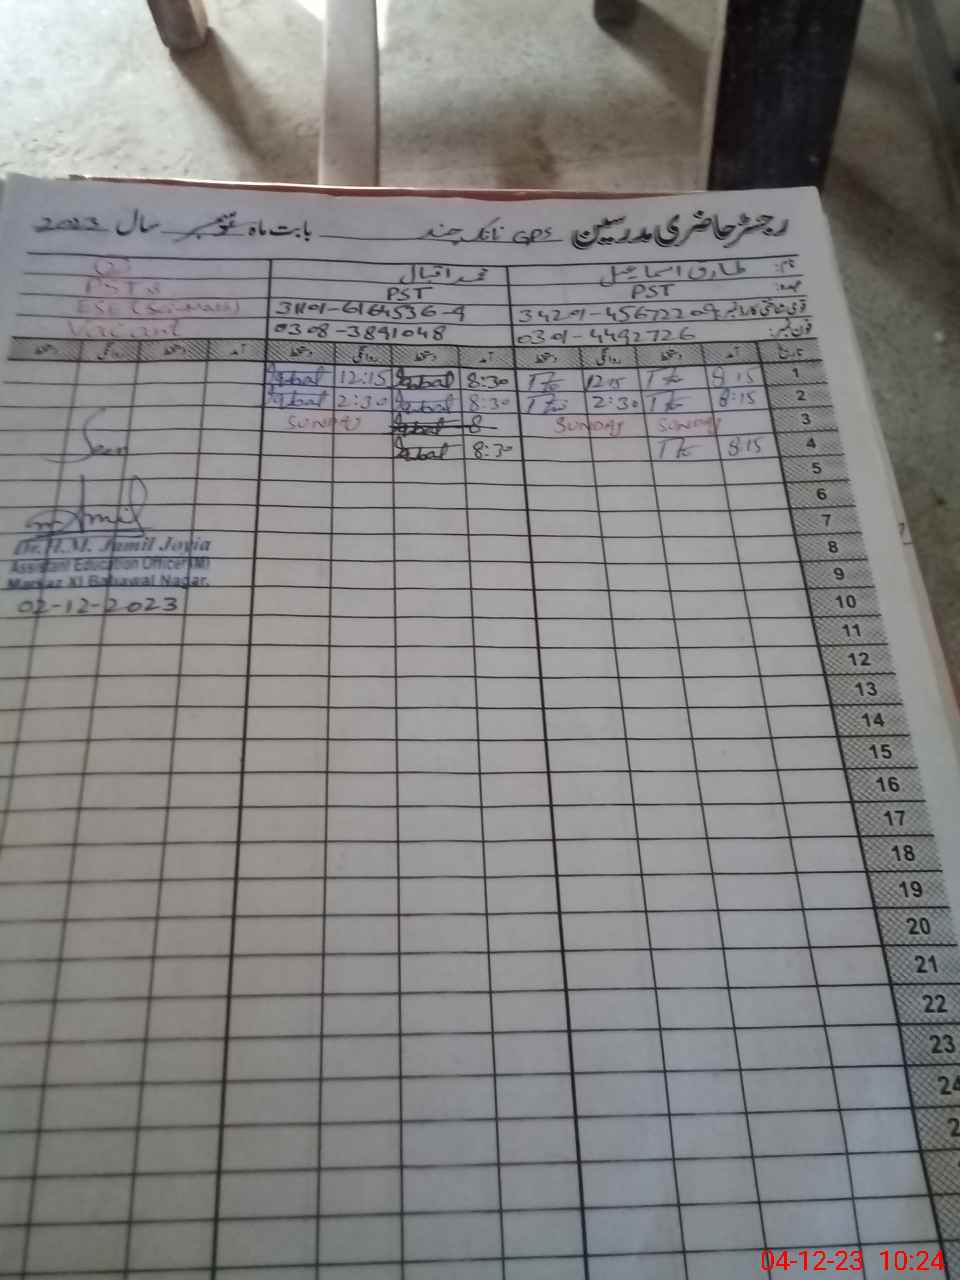 رجسٹر حاضری مدرسین GPS نانک چند بابت ماہ دسمبر سال 2023
نام: طارق اسماعیل محمد اقبال (2)
عہدہ: PST PST PSTs
قومی شناختی کارڈ نمبر: ESE (Sci-Math)
فون نمبر: 0301-4492726 0308-3891048 Vacant
تاریخ آمد دستخط روانگی دستخط آمد دستخط روانگی دستخط آمد دستخط روانگی دستخط
1 8:15 12:15 8:30 Iqbal 12:15 Iqbal
2 8:15 2:30 8:30 Iqbal 2:30 Iqbal
3 SUNDAY SUNDAY SUNDAY
4 8:15 8:30 Iqbal
Seen
5
6
7
8
9
10
Dr. H.M. Jamil Joyia
Assistant Education Officer (M)
Markaz XI Bahawal Nagar.
02-12-2023
11
12
13
14
15
16
17
18
19
20
21
22
23
24
04-12-23 10:24